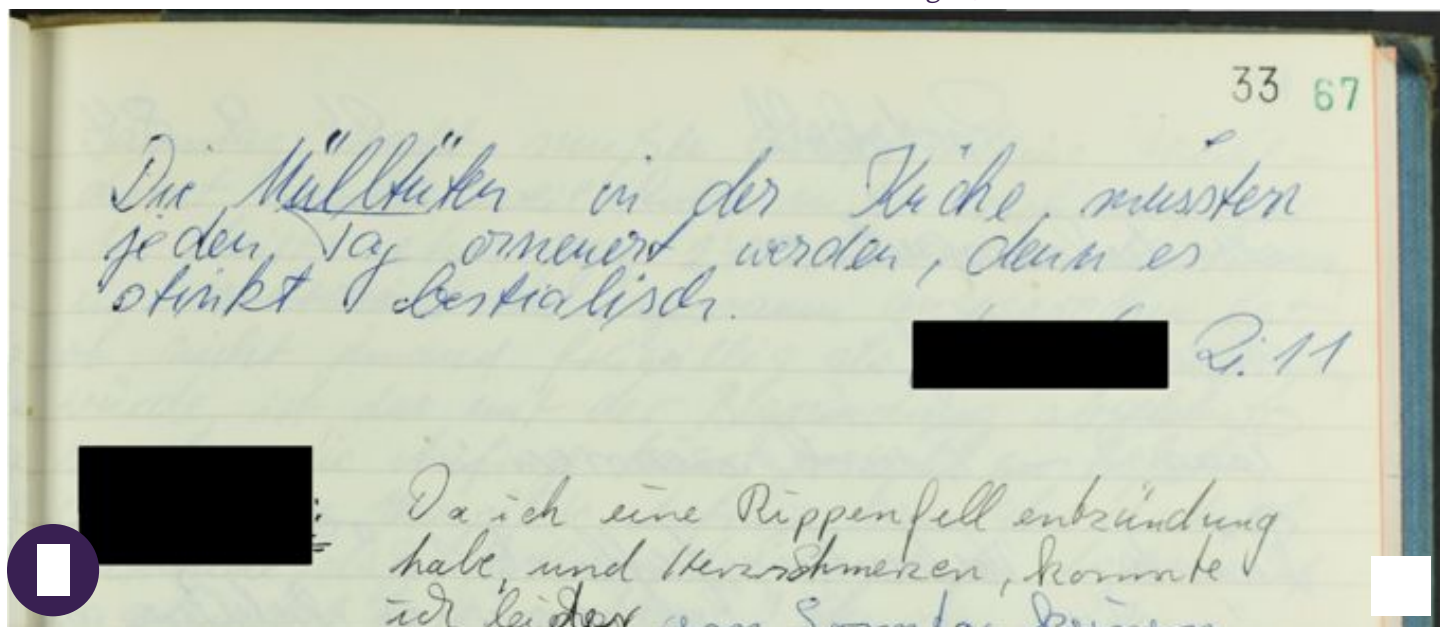 33 67
Die Mülltüten in der Küche, müssten
jeden Tag erneuert werden, denn es
stinkt bestialisch.
Zi. 11
:
Da ich eine Rippenfellentzündung
habe, und Herzschmerzen, konnte
ich leider am Sonntag keinen